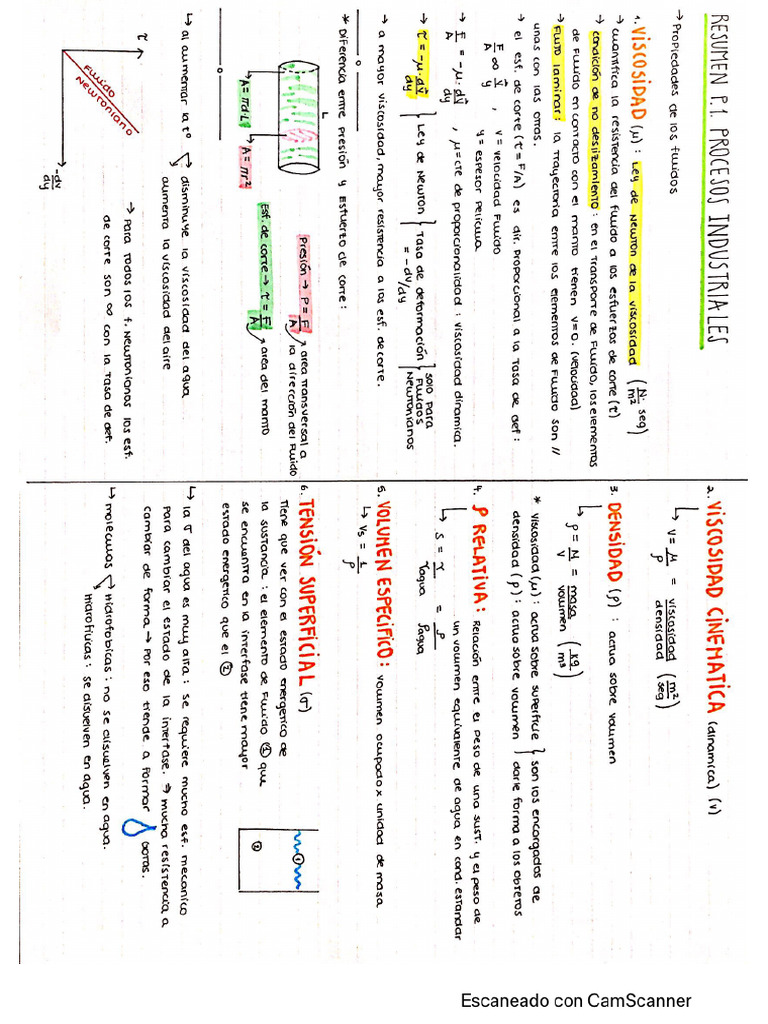 RESUMEN P.1. PROCESOS INDUSTRIALES
→ Propiedades de los fluidos
1. VISCOSIDAD (μ): Ley de Newton de la viscosidad (N·seg/m²)
→ cuantifica la resistencia del fluido a los esfuerzos de corte (τ)
→ condición de no deslizamiento: en el transporte de fluido, los elementos
de fluido en contacto con el manto tienen v=0. (velocidad)
→ Flujo laminar: la trayectoria entre los elementos de fluido son //
unas con las otras.
→ el esf. de corte (τ = F/A) es dir. proporcional a la tasa de def:
F/A ∝ v/y , v = velocidad fluido
y = espesor película
→ F/A = -μ · dv/dy , μ = cte de proporcionalidad: viscosidad dinamica.
→ τ = -μ · dv/dy } Ley de Newton } Tasa de deformación = -dv/dy } solo para Fluidos Newtonianos
→ a mayor viscosidad, mayor resistencia a los esf. de corte.
* Diferencia entre presión y esfuerzo de corte:
L
A = πd·L
A = πr²
Presión → P = F/A → area transversal a
la dirección del fluido
Esf. de corte → τ = F/A → area del manto
↳ al aumentar la t° disminuye la viscosidad del agua
aumenta la viscosidad del aire
τ
Fluido
Newtoniano
-dv/dy
→ Para todos los f. Newtonianos los esf.
de corte son ∝ con la tasa de def.
2. VISCOSIDAD CINEMATICA (dinamica) (v)
↳ v = μ/ρ = viscosidad/densidad (m²/seg)
3. DENSIDAD (ρ): actua sobre volumen
↳ ρ = N/V = masa/volumen (kg/m³)
* viscosidad (μ): actua sobre superficie } son los encargados de
densidad (ρ): actua sobre volumen } darle forma a los objetos
4. ρ RELATIVA: Relación entre el peso de una sust. y el peso de
un volumen equivalente de agua en cond. estandar
↳ S = γ/γagua = ρ/ρagua
5. VOLUMEN ESPECIFICO: volumen ocupado x unidad de masa
↳ Vs = 1/ρ
6. TENSIÓN SUPERFICIAL (σ)
Tiene que ver con el estado energetico de
la sustancia: el elemento de fluido ① que
se encuentra en la interfase tiene mayor
estado energetico que el ②
①
②
↳ la σ del agua es muy alta: se requiere mucho esf. mecanico
para cambiar el estado de la interfase. ⇒ mucha resistencia a
cambiar de forma → Por eso tiende a formar gotas.
↳ moleculas hidrofobicas: no se disuelven en agua.
hidrofílicas: se disuelven en agua.
Escaneado con CamScanner